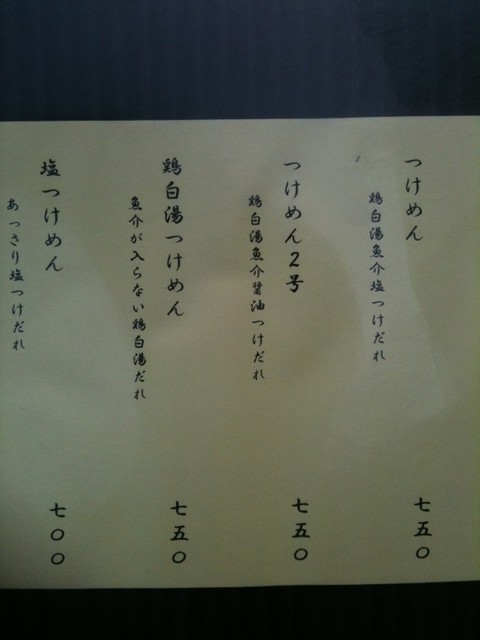 つけめん
鶏白湯魚介塩つけだれ
七五〇
つけめん2号
鶏白湯魚介醤油つけだれ
七五〇
鶏白湯つけめん
魚介が入らない鶏白湯だれ
七五〇
塩つけめん
あっさり塩つけだれ
七〇〇